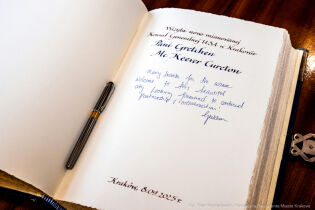 Wizyta nowo mianowanej
Konsul Generalnej USA w Krakowie
Pani Gretchen
Mc Keever Cureton
Many thanks for the warm
welcome to this beautiful
city. Looking forward to continued
partnership &
Gretchen
Kraków, 8.09.2025 r.